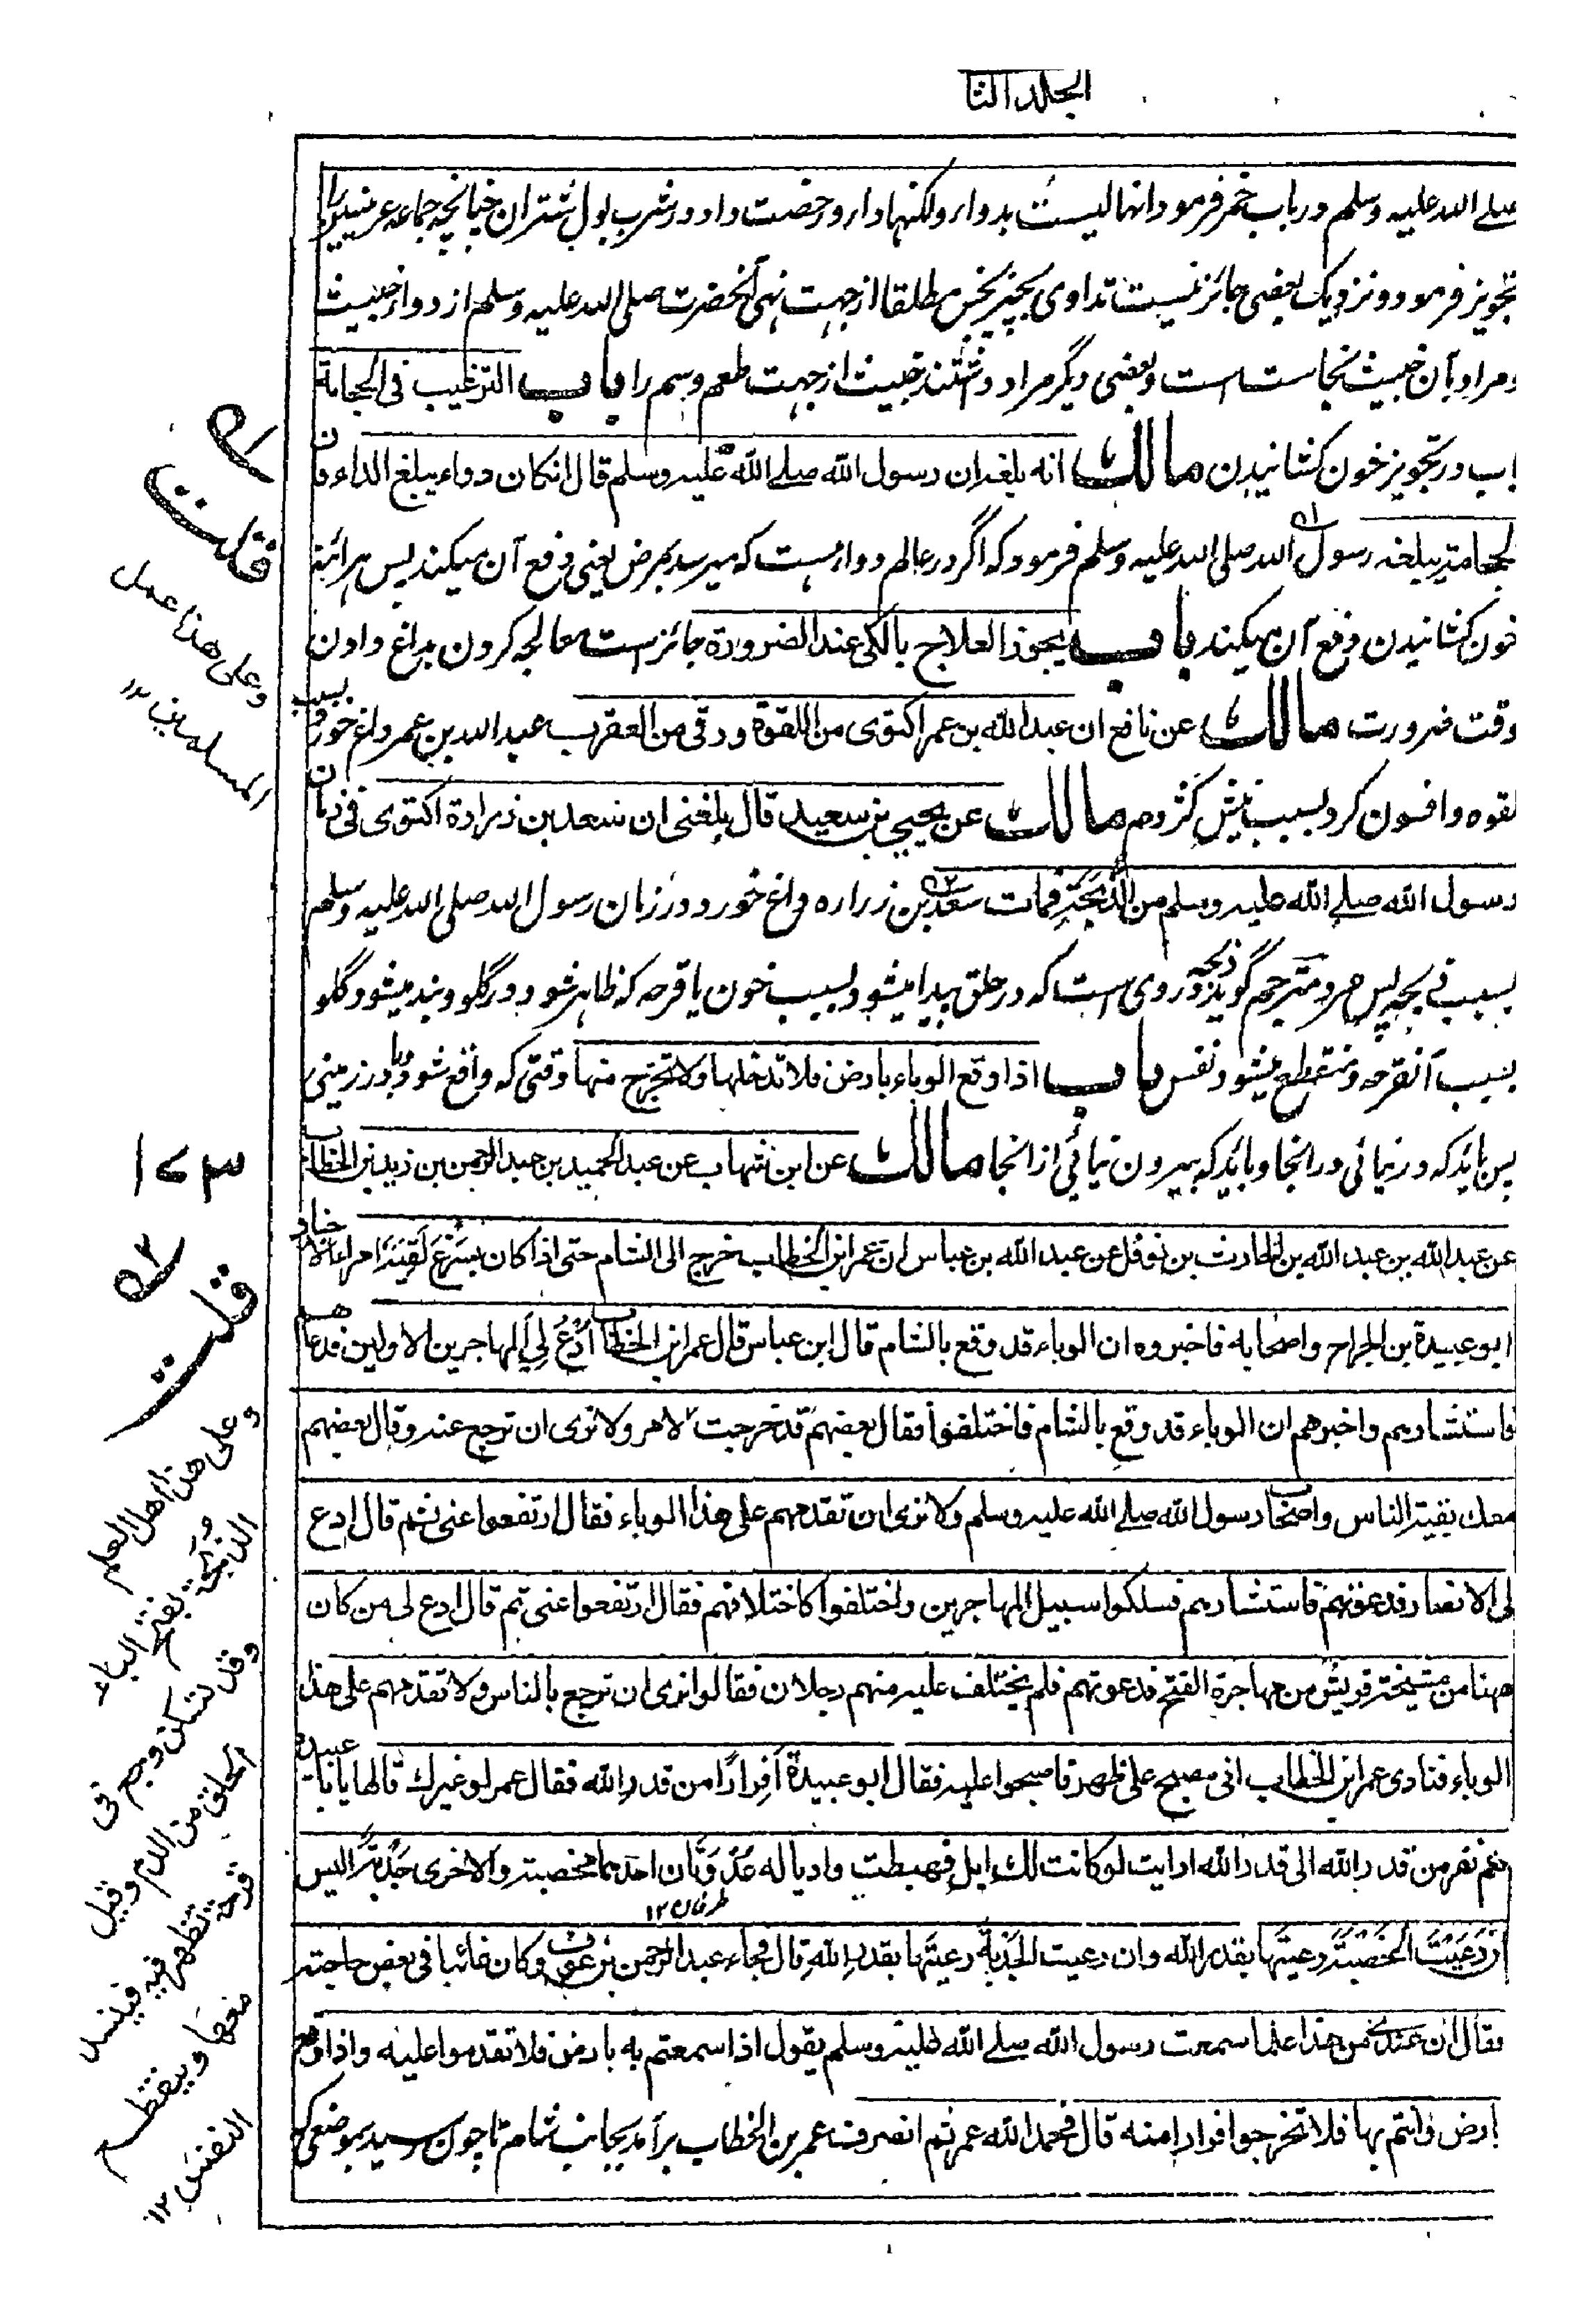 الجلد الثا
صلے الله علیه وسلم در باب خمر فرمود انها لیست بدواء ولکنها داء و رخصت داد در شرب بول شتران چنانچه جماعه عرنیین را
تجویز فرمود و نزدیک بعضی جائز نیست تداوی بچیز نجس مطلقا از جهت نهی آنحضرت صلی الله علیه وسلم از دواء خبیث
و مراد بآن خبیث نجاست است و بعضی دیگر مراد داشتند خبیث از جهت طعم و سم را باب الترغیب فی الحجامة
باب در تجویز خون کشانیدن مالك انه بلغه ان رسول الله صلے الله علیه وسلم قال ان کان دواء یبلغ الداء فان
الحجامة تبلغه رسول الله صلی الله علیه وسلم فرمود که اگر در عالم دواء هست که میرسد بمرض یعنی دفع آن میکند پس هر آئینه
خون کشانیدن دفع آن میکند باب یجوز العلاج بالکی عند الضرورة جائز است معالجه کردن بداغ دادن
وقت ضرورت مالك عن نافع ان عبد الله بن عمر اکتوی من اللقوة ورقی من العقرب عبد الله بن عمر داغ خورد بسبب
لقوه و افسون کرد بسبب نیش کژدم مالك عن یحیی بن سعید قال بلغنی ان سعد بن زرارة اکتوی فی زمان
رسول الله صلے الله علیه وسلم من الذبحة فمات سعد بن زراره داغ خورد در زمان رسول الله صلی الله علیه وسلم
بسبب ذبحه پس مرد مترجم گوید ذبحه دردی است که در حلق پیدا میشود بسبب خون یا قرحه که ظاهر شود در گلو و بند میشود گلو
بسبب آنقرحه و منقطع میشود نفس باب اذا وقع الوباء بارض فلا تدخلها ولا تخرج منها وقتی که واقع شود وبا در زمینی
پس باید که در نیائی در انجا و باید که بیرون نیائی از انجا مالك عن ابن شهاب عن عبد الحمید بن عبد الرحمن بن زید بن الخطاب
عن عبد الله بن عبد الله بن الحارث بن نوفل عن عبد الله بن عباس ان عمر ابن الخطاب خرج الی الشام حتی اذا کان بسرغ لقیه امراء الاجناد
ابو عبیدة بن الجراح واصحابه فاخبروه ان الوباء قد وقع بالشام قال ابن عباس قال عمر ابن الخطاب ادع لی المهاجرین الاولین فدعاهم
فاستشارهم واخبرهم ان الوباء قد وقع بالشام فاختلفوا فقال بعضهم قد خرجت لامر ولا نری ان ترجع عنه وقال بعضهم
معك بقیة الناس واصحاب رسول الله صلے الله علیه وسلم ولا نری ان تقدمهم علی هذا الوباء فقال ارتفعوا عنی ثم قال ادع
لی الانصار فدعوتهم فاستشارهم فسلکوا سبیل المهاجرین واختلفوا کاختلافهم فقال ارتفعوا عنی ثم قال ادع لی من کان
ههنا من مشیخة قریش من مهاجرة الفتح فدعوتهم فلم یختلف علیه منهم رجلان فقالوا نری ان ترجع بالناس ولا تقدمهم علی هذا
الوباء فنادی عمر ابن الخطاب انی مصبح علی ظهر فاصبحوا علیه فقال ابو عبیدة أفرارًا من قدر الله فقال عمر لو غیرك قالها یا ابا عبیدة
نعم نفر من قدر الله الی قدر الله ارایت لو کانت لك ابل فهبطت وادیا له عُدْوَتَان احدهما مخصبة والاخری جدبة الیس
طرفان ۱۲
ان رعیت الخصبة رعیتها بقدر الله وان رعیت الجدبة رعیتها بقدر الله قال فجاء عبد الرحمن بن عوف وکان غائبا فی بعض حاجته
فقال ان عندی من هذا علما سمعت رسول الله صلے الله علیه وسلم یقول اذا سمعتم به بارض فلا تقدموا علیه واذا وقع
بارض وانتم بها فلا تخرجوا فرارا منه قال فحمد الله عمر ثم انصرف عمر بن الخطاب برآمد بجانب شام تا چون رسید بموضعی که
۵۱
قلت
وعلی هذا عمل
المسلمین ۱۲
۱۷۳
۵۲
قلت
وعلی هذا اهل العلم
الذبحة بفتح الباء
وقد تسکن وجع فی
الحلق من الدم وقیل
قرحة تظهر فیه فینسد
معها وینقطع
النفس ۱۲